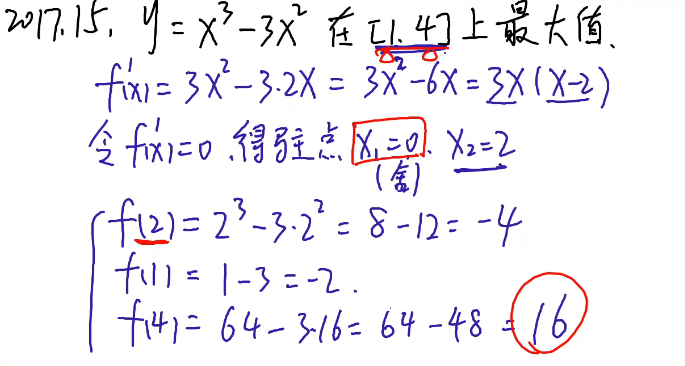 2017.15. y = x³ - 3x² 在 [1.4] 上最大值.
f'(x) = 3x² - 3·2x = 3x² - 6x = 3x(x-2)
令 f'(x) = 0 .得驻点 x₁=0 . x₂=2
(舍)
f(2) = 2³ - 3·2² = 8 - 12 = -4
f(1) = 1 - 3 = -2.
f(4) = 64 - 3·16 = 64 - 48 = 16